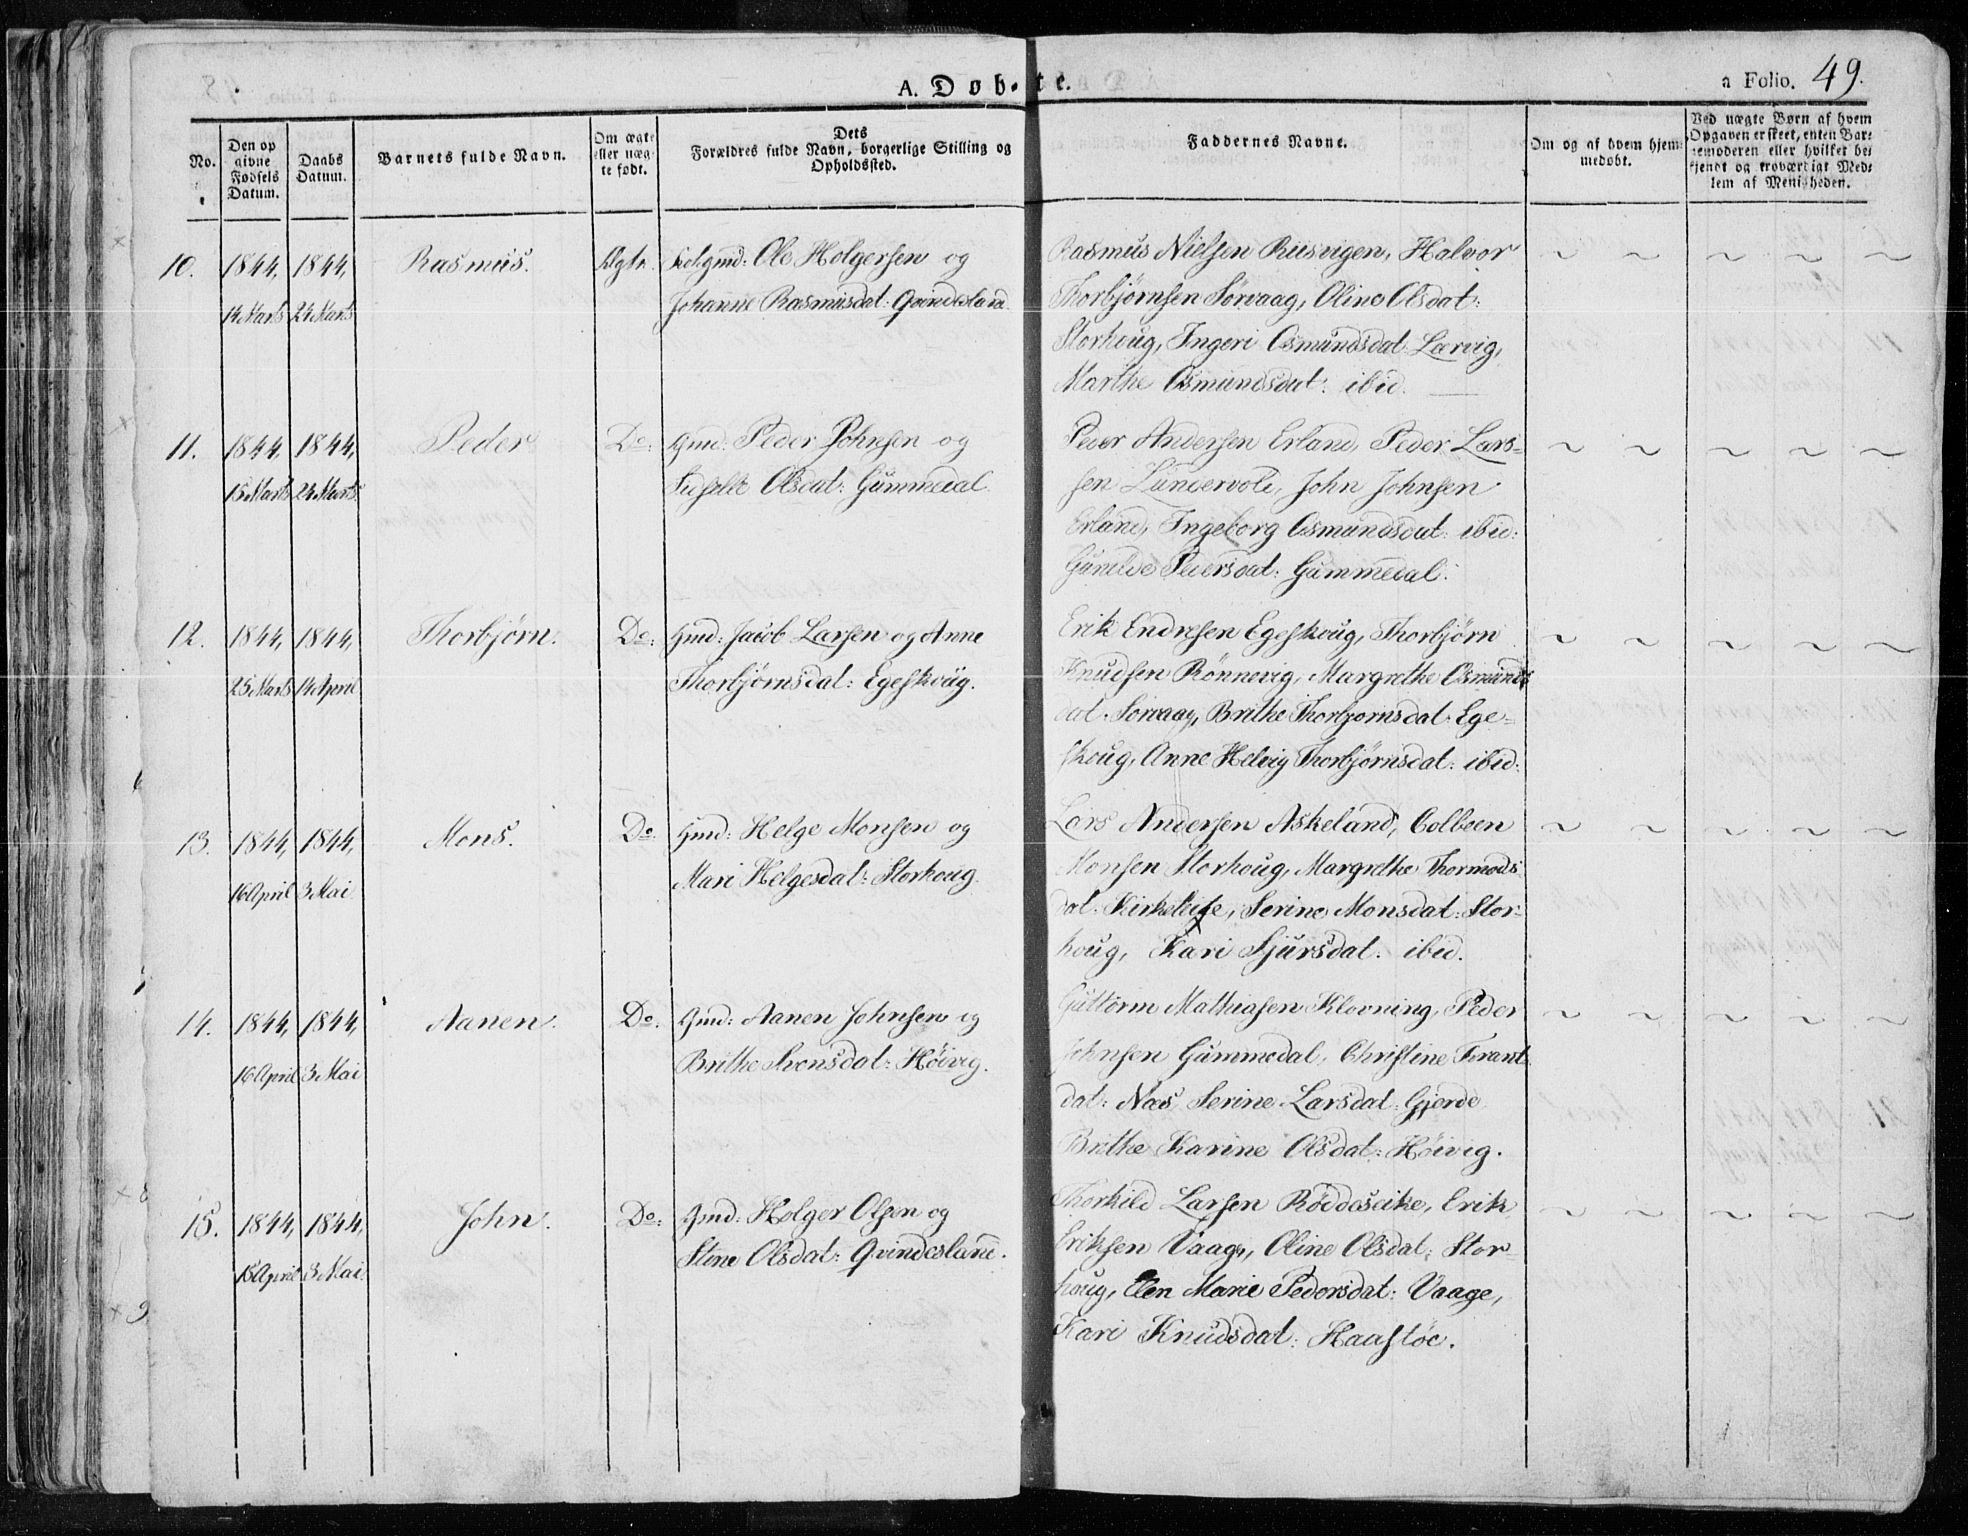 A. Døbte.
a Folio. 49.
No.
Den op
givne
Fødsels
Datum.
Daabs
Datum.
Barnets fulde Navn.
Om ægte
eller uæg-
te født.
Dets
Forældres fulde Navn, borgerlige Stilling og
Opholdssted.
Faddernes Navne.
Om og af hvem hjem-
medøbt.
Ved uægte Børn af hvem
Opgaven er skeet, enten Bar-
nemoderen eller hvilket be-
kjendt og troværdigt Med-
lem af Menigheden.
10. 1844, 1844, Rasmus. Ægte. Ole Holgersen og
14 Marts 24 Marts Johanne Rasmusdat: Qvindesland.
Rasmus Nielsen Rusvigen, Halvor
Thorbjørnsen Sørvaag, Oline Olsdat:
Storhoug, Ingeri Osmundsdat: Lærvig,
Marthe Osmundsdat: ibid.
11. 1844, 1844, Peder Do: Gmd: Peder Johnsen og
15 Marts 24 Marts Olsdat: Gummedal.
Peder Andersen Erland, Peder Lars-
sen Lundervold, John Johnsen
Erland, Ingeborg Osmundsdat: ibid:
Gunilde Pedersdat: Gummedal.
12. 1844, 1844, Thorbjørn. Do: Gmd: Jacob Larsen og Anne
25 Marts 14 April Thorbjørnsdat: Egeskoug.
Erik Endresen Egeskoug, Thorbjørn
Knudsen Rønnevig, Margrethe Osmunds
dat: Sørvaag, Brithe Thorbjørnsdat: Ege-
skoug, Anne Helvig Thorbjørnsdat: ibid:
13. 1844, 1844, Mons. Do: Gmd: Helge Monsen og
16 April 3 Mai Mari Helgesdat: Storhoug.
Lars Andersen Askeland, Colbeen
Monsen Storhoug, Margrethe Thormods
dat: Serine Monsdat: Stor-
houg, Kari Sjursdat: ibid.
14. 1844, 1844, Aanen. Do: Gmd: Aanen Johnsen og
16 April 3 Mai Brithe Svensdat: Høivig.
Guttorm Mathiasen Klovning, Peder
Johnsen Gummedal, Christine Frants
dat: Næs, Serine Larsdat: Gjerde
Brithe Karine Olsdat: Høivig.
15. 1844, 1844, John. Do: Gmd: Holger Olsen og
15 April 3 Mai. Olsdat: Qvindesland.
Thorkild Larsen Erik
Eriksen Vaage, Oline Olsdat: Stor-
houg, Elen Marie Pedersdat: Vaage,
Kari Knudsdat: Haasløe.